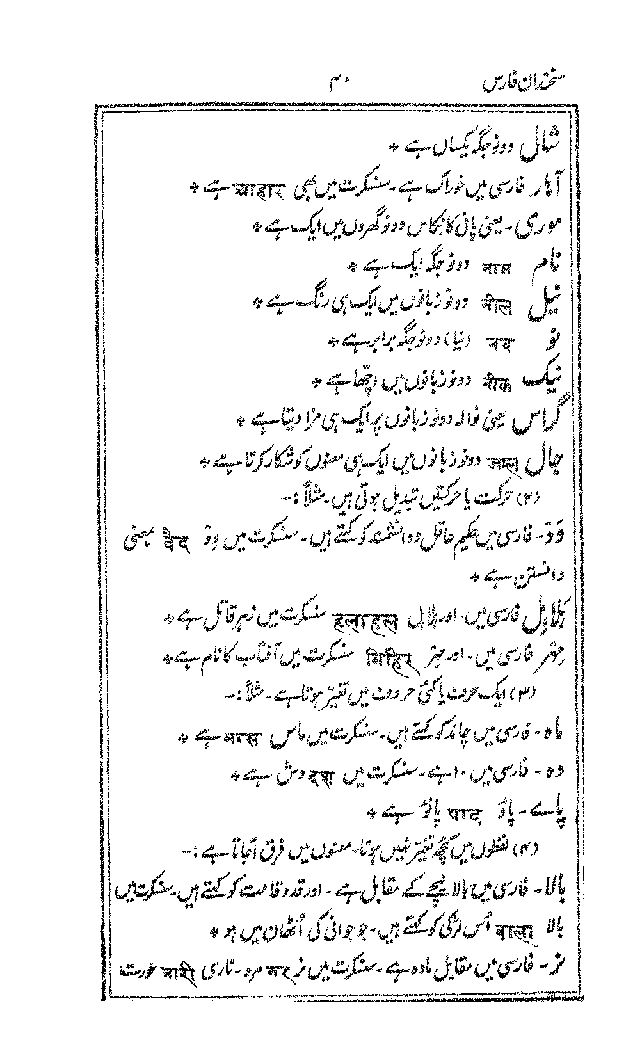 سخندان فارس ۴۰
شال دونو جگہ یکساں ہے ٭
آہار فارسی میں خوراک ہے۔ سنسکرت میں بھی आहार ہے ٭
موری۔ یعنی پانی کا نکاس دونو گھروں میں ایک ہے ٭
نام नाम دونو جگہ ایک ہے ٭
نیل नील دونو زبانوں میں ایک ہی رنگ ہے ٭
نو नव (نیا) دونو جگہ برابر ہے ٭
نیک नीक دونو زبانوں میں اچھا ہے ٭
گراس یعنی نوالہ دونو زبانوں پر ایک ہی مزا دیتا ہے ٭
جال जाल دونو زبانوں میں ایک ہی معنوں کو شکار کرتا ہے ٭
(۲) حرکت یا حرکتیں تبدیل ہوتی ہیں۔ مثلاً :-
وَد۔ فارسی میں حکیم عاقل و دانشمند کو کہتے ہیں۔ سنسکرت میں وِد वैद بمعنی
دانستن ہے ٭
ہلاہِل فارسی میں۔ اور ہلاہل हलाहल سنسکرت میں زہر قاتل ہے ٭
مِہر فارسی میں۔ اور مِہِر मिहिर سنسکرت میں آفتاب کا نام ہے ٭
(۳) ایک حرف یا کئی حروف میں تغیّر ہوتا ہے۔ مثلاً :-
ماہ۔ فارسی میں چاند کو کہتے ہیں۔ سنسکرت میں ماس मास ہے ٭
دہ۔ فارسی میں ۱۰ ہے۔ سنسکرت میں दश دش ہے ٭
پاے۔ پاؤ पाद پاؤں ہے ٭
(۴) لفظوں میں کچھ تغیّر نہیں ہوتا۔ معنوں میں فرق آجاتا ہے :-
بالا۔ فارسی میں بالا نیچے کے مقابل ہے۔ اور قد و قامت کو کہتے ہیں۔ سنسکرت میں
بالا बाला اُس لڑکی کو کہتے ہیں۔ جو جوانی کی اُٹھان میں ہو ٭
نر۔ فارسی میں مقابل مادہ ہے۔ سنسکرت میں نر नर مرد۔ ناری नारी عورت